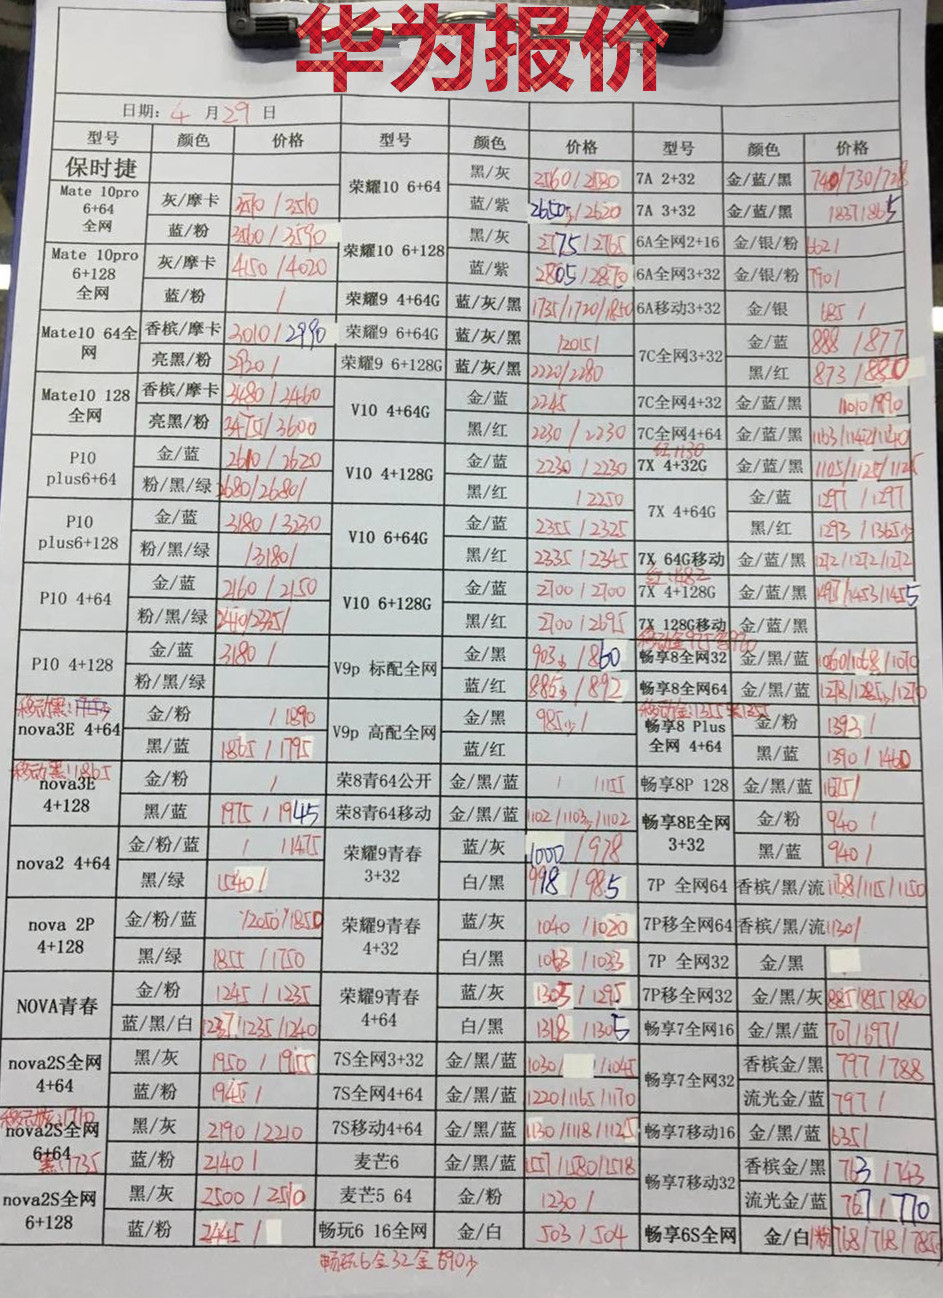 华为报价
日期: 4 月 29 日
型号 颜色 价格 型号 颜色 价格 型号 颜色 价格
保时捷 荣耀10 6+64 黑/灰 2560/2580 7A 2+32 金/蓝/黑 740/730/728
Mate 10pro 6+64 全网 灰/摩卡 3510/3510 蓝/紫 2650/2620 7A 3+32 金/蓝/黑 /837/865
蓝/粉 3560/3590 荣耀10 6+128 黑/灰 2775/2765 6A全网2+16 金/银/粉 662/
Mate 10pro 6+128 全网 灰/摩卡 4150/4020 蓝/紫 2805/2870 6A全网3+32 金/银/粉 790/
蓝/粉 / 荣耀9 4+64G 蓝/灰/黑 1735/1720/1850 6A移动3+32 金/银 685/
Mate10 64全网 香槟/摩卡 3010/2990 荣耀9 6+64G 蓝/灰/黑 /2015/ 7C全网3+32 金/蓝 888/877
亮黑/粉 2920/ 荣耀9 6+128G 蓝/灰/黑 2220/2280 黑/红 873/880
Mate10 128全网 香槟/摩卡 3480/3460 V10 4+64G 金/蓝 2245 7C全网4+32 金/蓝/黑 /1010/990
亮黑/粉 3475/3600 黑/红 2230/2230 7C全网4+64 金/蓝/黑 1163/1142/1140
红1130
P10 plus6+64 金/蓝 2610/2620 V10 4+128G 金/蓝 2230/2230 7X 4+32G 金/蓝/黑 1105/1125/1125
粉/黑/绿 2680/2680/ 黑/红 /2250 7X 4+64G 金/蓝 1297/1297
P10 plus6+128 金/蓝 3180/3230 V10 6+64G 金/蓝 2355/2325 黑/红 1293/1365少
粉/黑/绿 /3180/ 黑/红 2335/2345 7X 64G移动 金/蓝/黑 1272/1272/1272
红:1482
P10 4+64 金/蓝 2160/2150 V10 6+128G 金/蓝 2700/2700 7X 4+128G 金/蓝/黑 1495/1453/1455
粉/黑/绿 2440/2325/ 黑/红 2700/2695 7X 128G移动 金/蓝/黑
P10 4+128 金/蓝 3180/ V9p 标配全网 金/黑 903少/860 畅享8全网32 金/黑/蓝 1060/1068/1070
粉/黑/绿 蓝/红 885少/892 畅享8全网64 金/黑/蓝 1278/1285少/1270
nova3E 4+64 金/粉 /1890 V9p 高配全网 金/黑 985少/ 畅享8 Plus全网 4+64 金/粉 1393/
黑/蓝 1865/1795 蓝/红 黑/蓝 1390/1460
移动黑:1865
nova3E 4+128 金/粉 / 荣8青64公开 金/黑/蓝 / /1155 畅享8P 128 金/黑/蓝 1675/
黑/蓝 1975/1945 荣8青64移动 金/黑/蓝 1102/1103少/1102 畅享8E全网 3+32 金/粉 940/
nova2 4+64 金/粉/蓝 / /1475 荣耀9青春 3+32 蓝/灰 1000/978 黑/蓝 940/
黑/绿 1540/ 白/黑 998/985 7P 全网64 香槟/黑/流 1168/1115/1150
nova 2P 4+128 金/粉/蓝 /2050/1850 荣耀9青春 4+32 蓝/灰 1040/1020 7P移全网64 香槟/黑/流 1130/
黑/绿 1855/1750 白/黑 1063/1033 7P 全网32 金/黑
NOVA青春 金/粉 1245/1235 荣耀9青春 4+64 蓝/灰 1305/1295 7P移全网32 金/黑/灰 885/895/880
蓝/黑/白 1237/1235/1240 白/黑 1318/1305 畅享7全网16 金/黑/蓝 707/697/
nova2S全网 4+64 黑/灰 1950/1955 7S全网3+32 金/黑/蓝 1030/ /1045 畅享7全网32 香槟金/黑 797/788
蓝/粉 1945/ 7S全网4+64 金/黑/蓝 1220/1165/1170 流光金/蓝 797/
nova2S全网 6+64 黑/灰 2190/2210 7S移动4+64 金/黑/蓝 1130/1118/1125 畅享7移动16 金/黑/蓝 635/
黑:1735 蓝/粉 2140/ 麦芒6 金/黑/蓝 1557/1580/1518 畅享7移动32 香槟金/黑 763/743
nova2S全网 6+128 黑/灰 2500/2510 麦芒5 64 金/粉 1230/ 流光金/蓝 767/770
蓝/粉 2445/ 畅玩6 16全网 金/白 503/504 畅享6S全网 金/白/粉 768/768/785少
畅玩6全32金590少